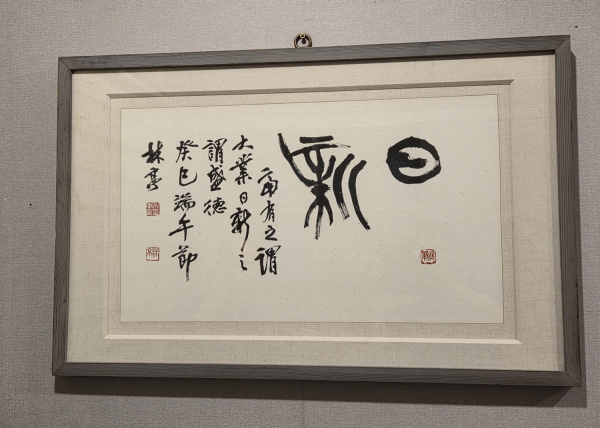 日新
富有之謂
大業日新之
謂盛德
癸巳端午節
林